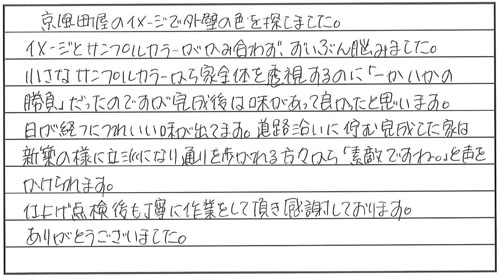 京風町屋のイメージで外壁の色を探しました。
イメージとサンプルカラーがかみ合わず、ずいぶん脳みました。
小さなサンプルカラーから家全体を透視するのに「一かバかの
勝負」だったのですが完成後は味があって良かたと思います。
日が経つにつれいい味が出てます。道路沿いに佇む完成した家は
新築の様に立派になり通りを歩かれる方々から「素敵ですね。」と声を
かけられます。
仕上げ点検後も丁寧に作業をして頂き感謝しております。
ありがとうございました。